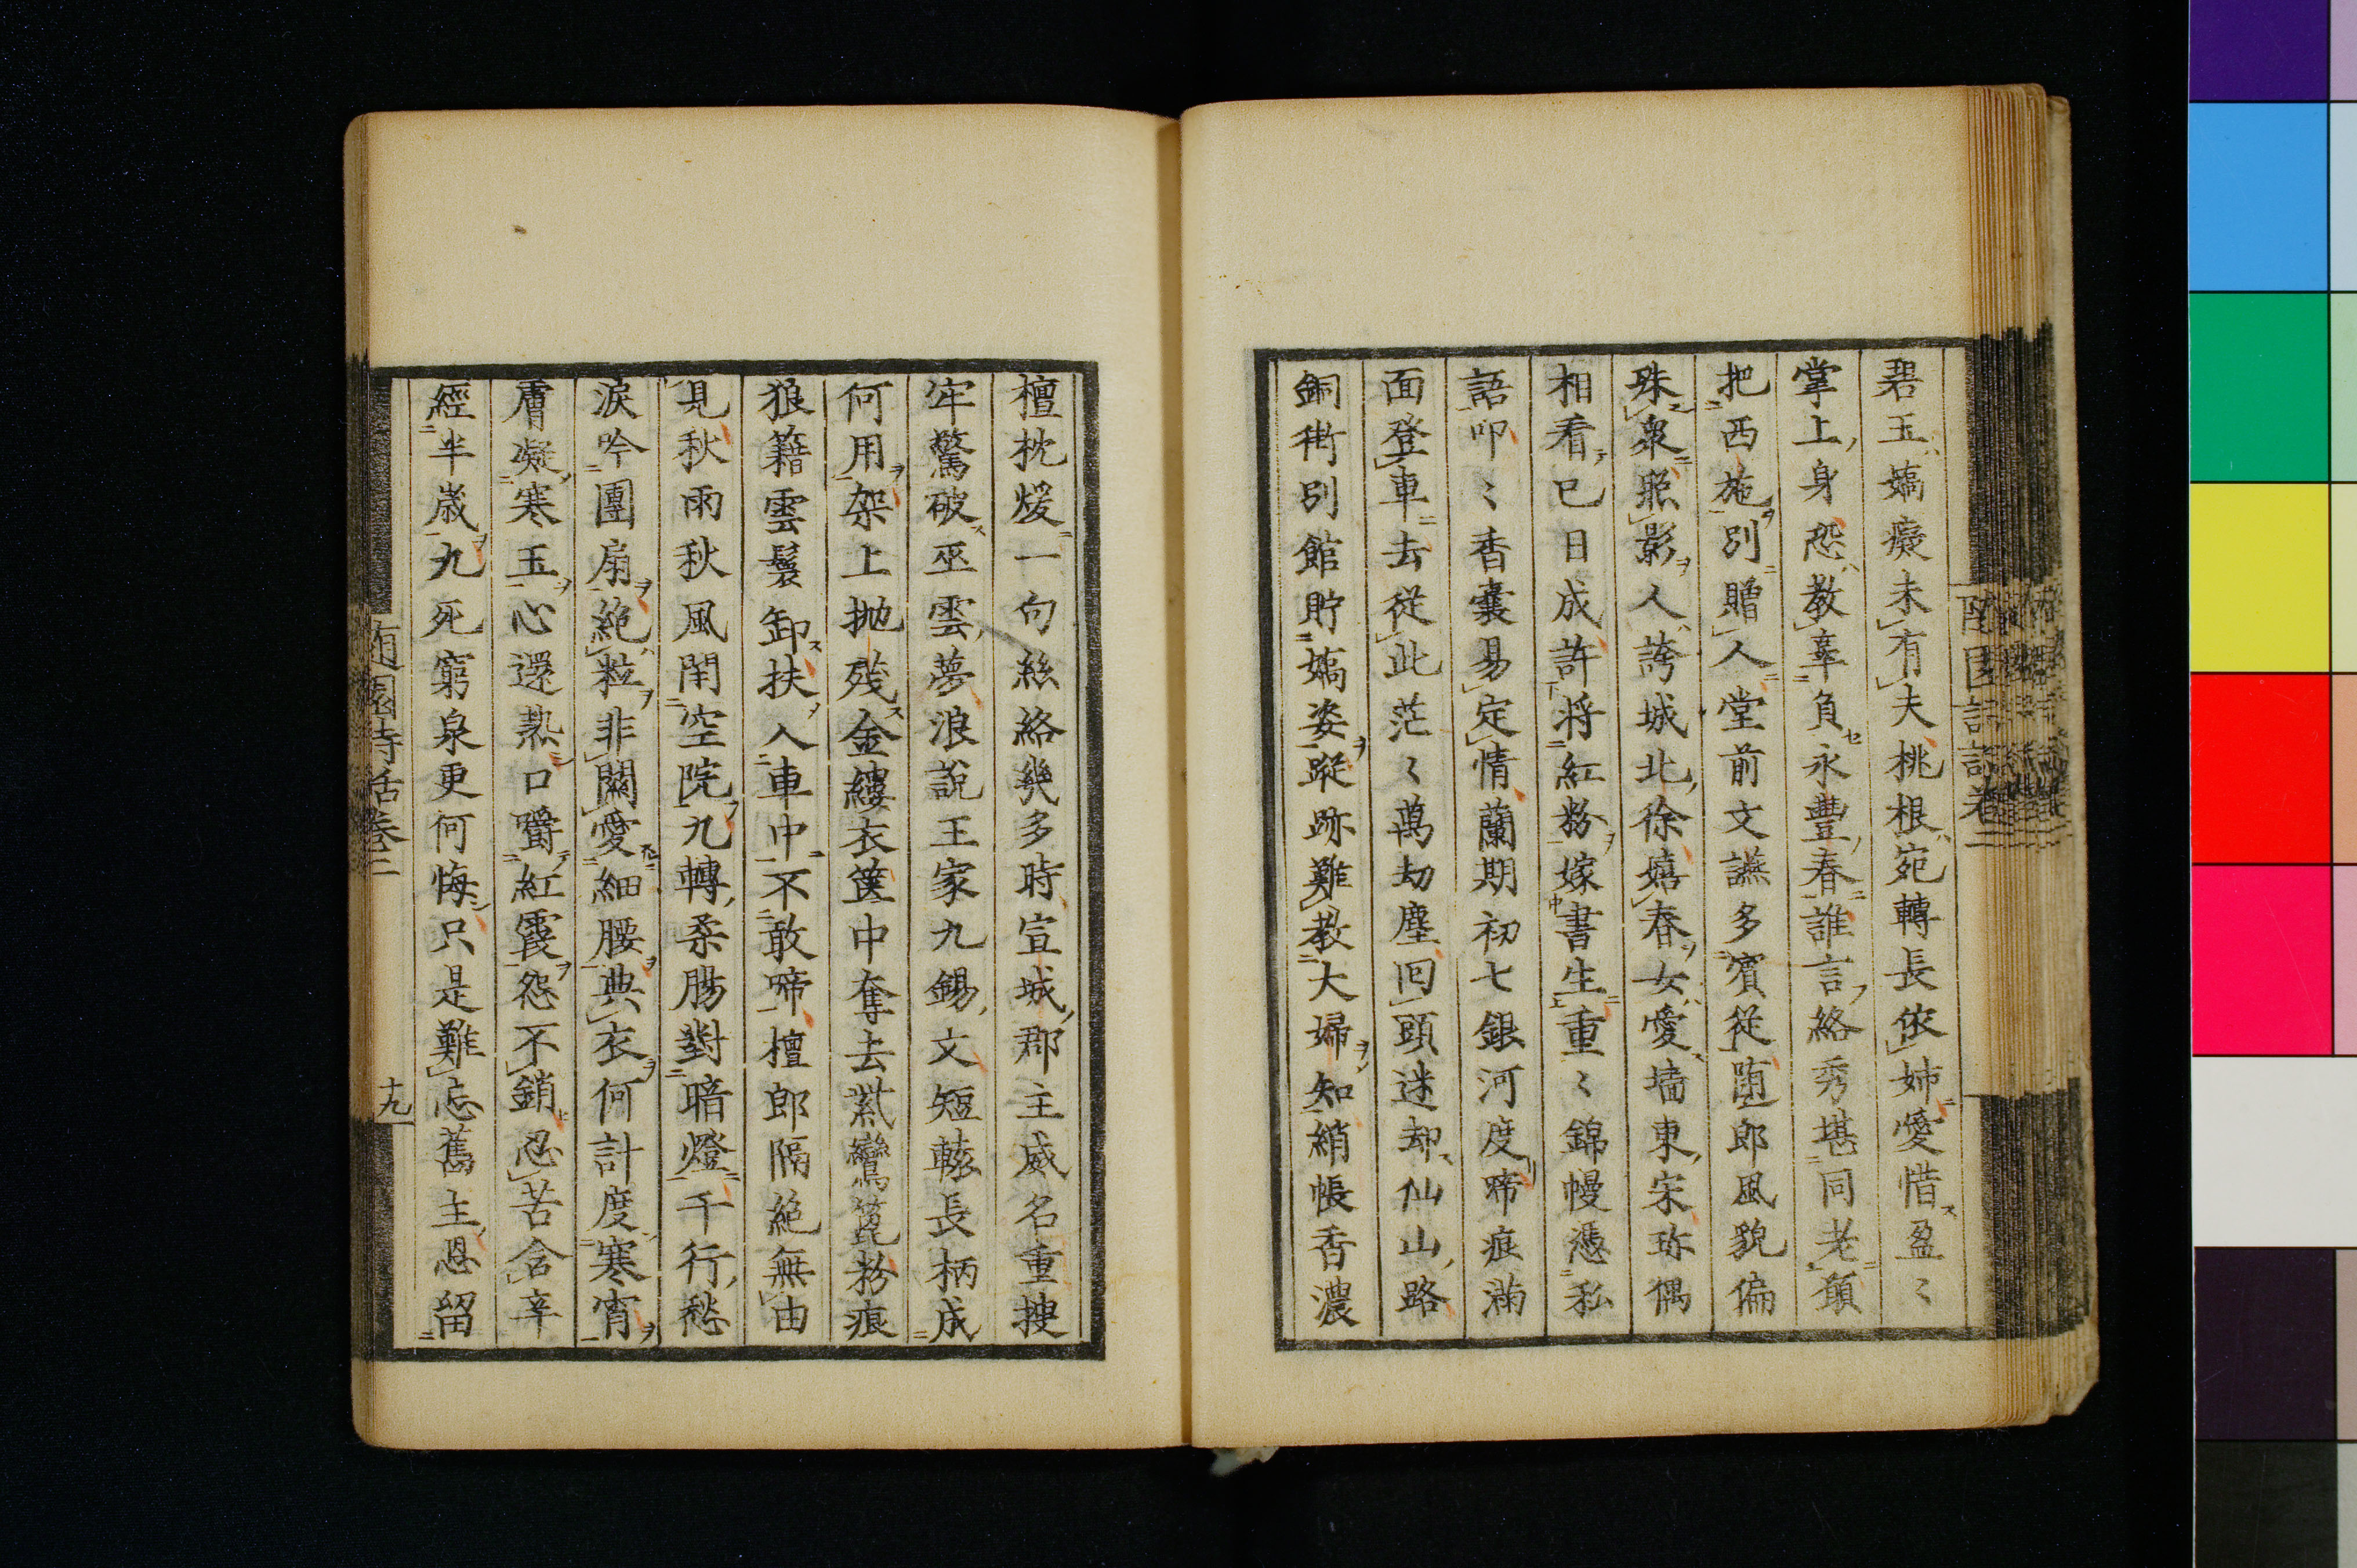 碧玉嬌癡未有夫桃根宛轉長依姉愛惜盈〻
掌上身怨教辜負永豐春誰言絡秀堪同老頠
把西施別贈人堂前文讌多賓従随郎風貌偏
珠衆照影人誇城北徐嬉春女愛墻東宋珎偶
相看已日成許将紅粉嫁書生重〻錦幔憑私
語叩〻香嚢易定情蘭期初七銀河度啼痕満
面登車去従此茫〻萬劫塵回頭迷却仙山路
銅街別館貯嬌姿蹤跡難教大婦知綃帳香濃
檀枕煖一向絲絡幾多時宣城郡主威名重捜
牢驚破巫雲夢浪説王家九錫文短轅長柄成
何用架上抛残金縷衣篋中奪去紫鸞篦粉痕
狼籍雲鬟卸扶入車中不敢啼檀郎隔絶無由
見秋雨秋風閉空院九轉柔腸對暗燈千行愁
涙吟團扇絶粒非關愛細腰典衣何計度寒宵
膚凝寒玉心還熱口嚼紅霞怨不銷忍苦含辛
經半歳九死窮泉更何悔只是難忘舊主恩留
随園詩話巻二
十九
随園詩話巻二